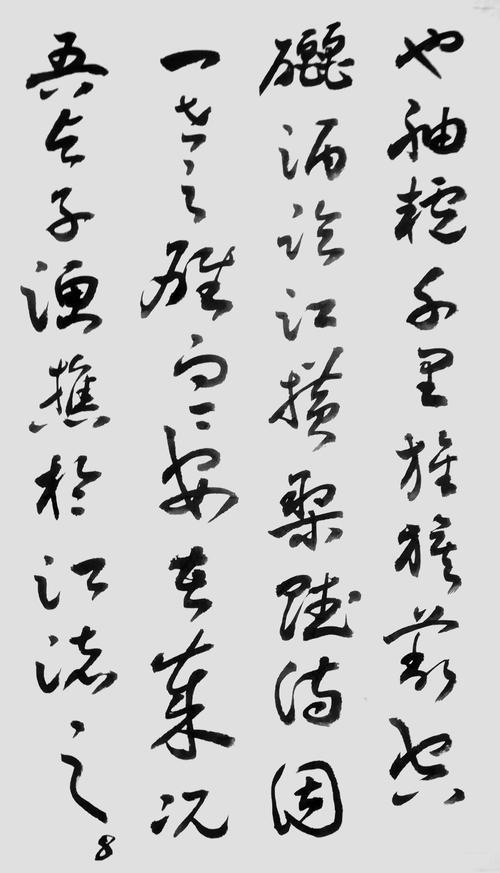 也舳艫千里旌旗蔽空
釃酒臨江橫槊賦詩固
一世之雄而今安在哉况
吾与子漁樵於江渚之上